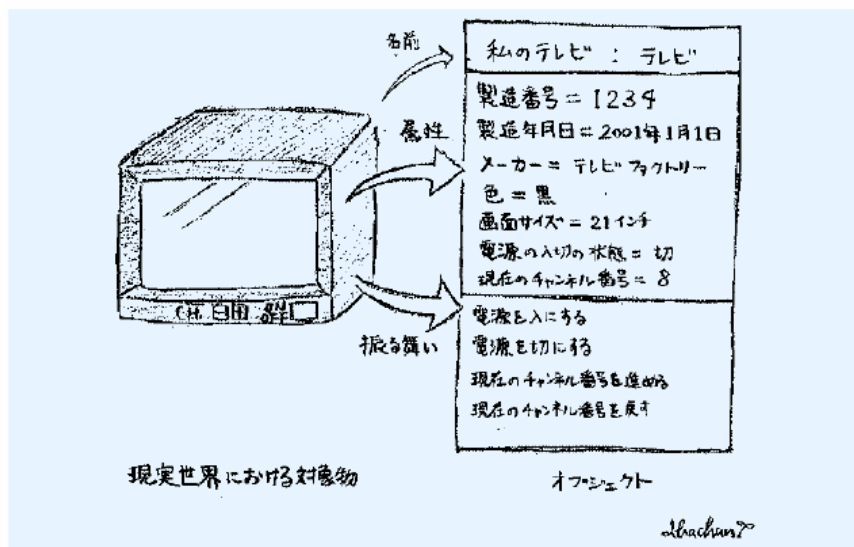 名前
私のテレビ : テレビ
属性
製造番号 = 1234
製造年月日 = 2001年1月1日
メーカー = テレビファクトリー
色 = 黒
画面サイズ = 21インチ
電源の入切の状態 = 切
現在のチャンネル番号 = 8
振る舞い
電源を入にする
電源を切にする
現在のチャンネル番号を進める
現在のチャンネル番号を戻す
現実世界における対象物
オブジェクト